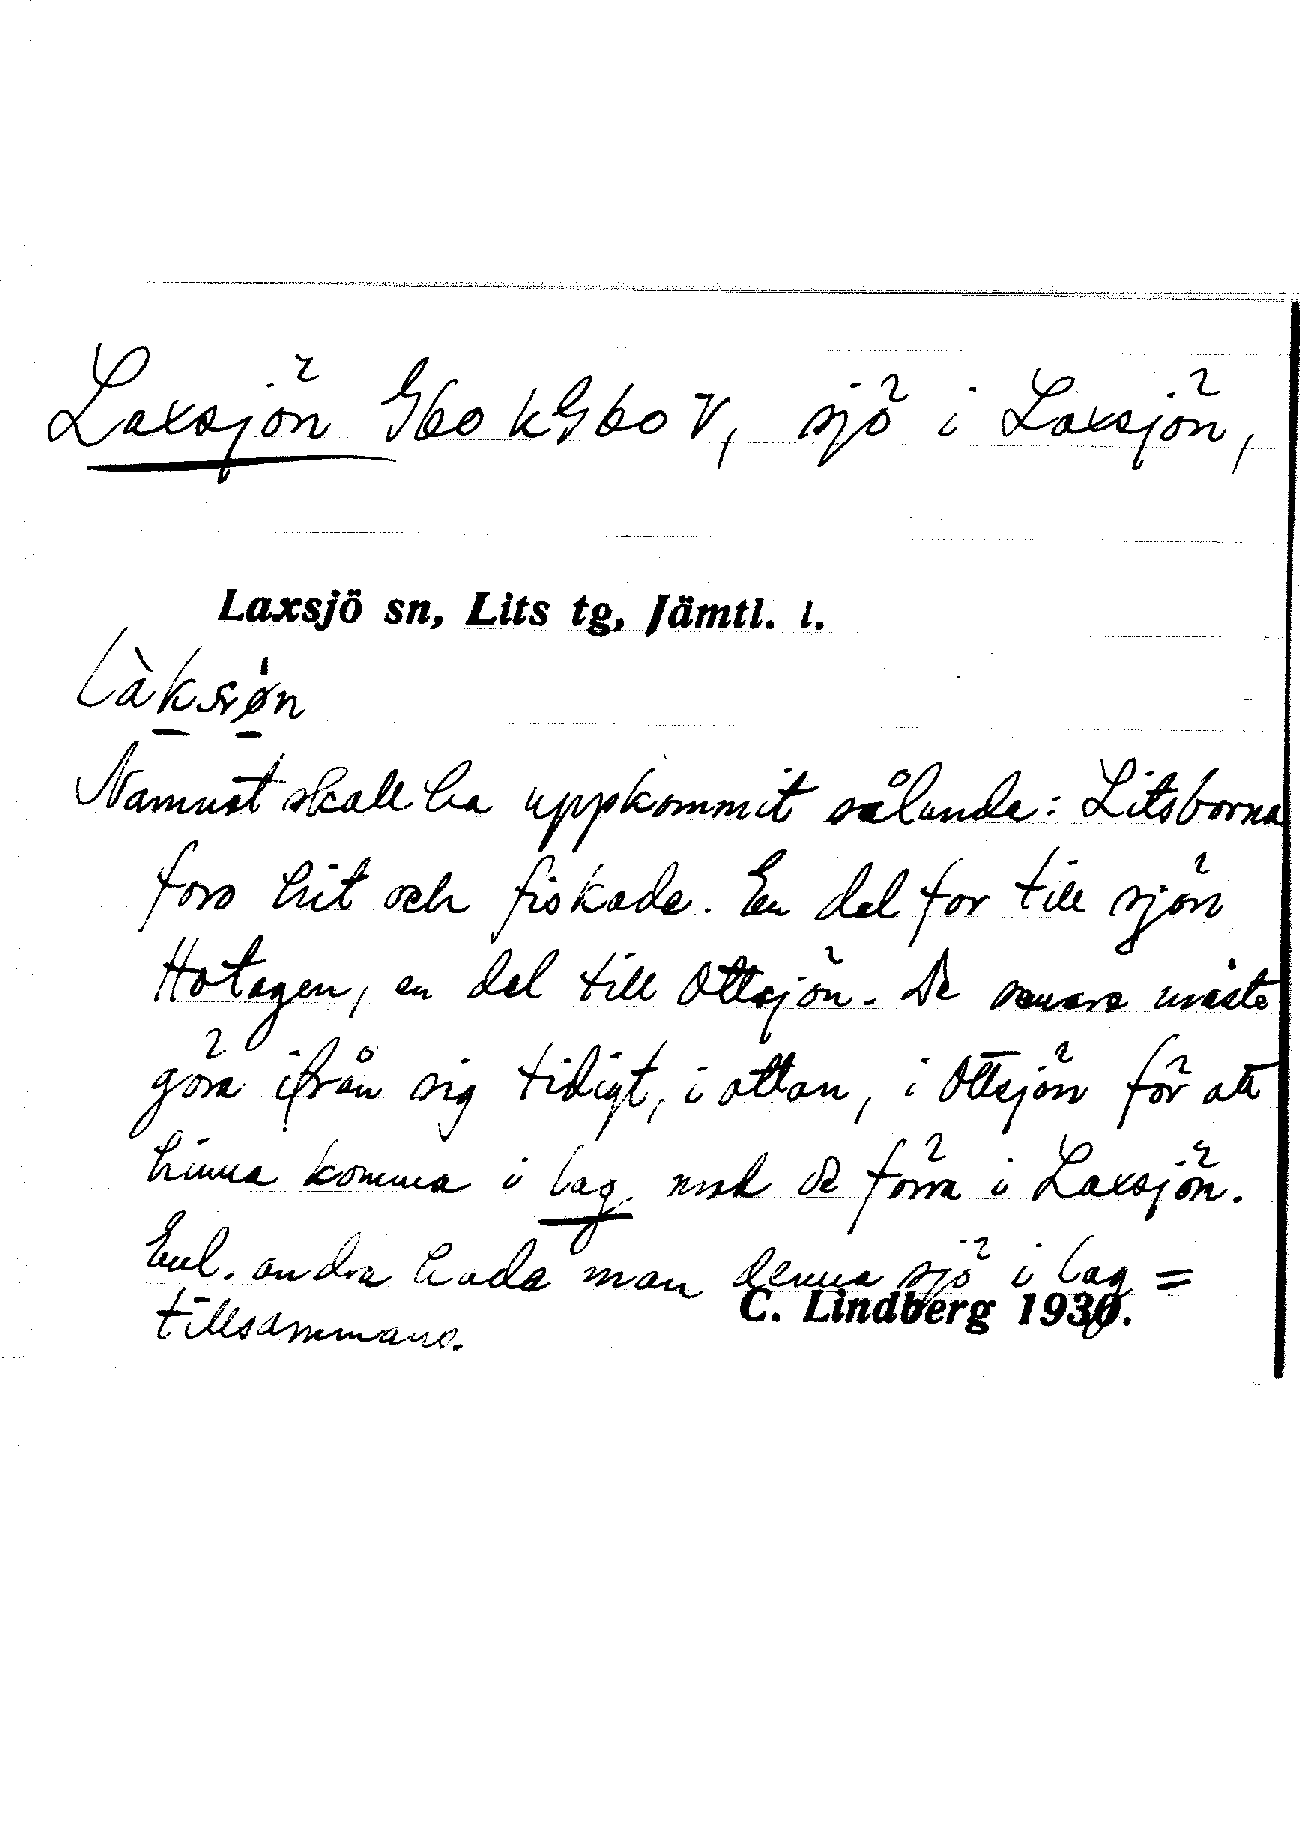 Laxsjön Gbo kGbo V, sjö i Laxsjön,
Laxsjö sn, Lits tg, Jämtl. l.
Namnet skall ha uppkommit sålunda: Litsborna
foro hit och fiskade. En del for till sjön
Hotagen, en del till Ottsjön. De senare måste
göra ifrån sig tidigt, i ottan, i Ottsjön för att
hinna komma i lag med de förra i Laxsjön.
Enl. andra hade man denna sjö i lag =
tillsammans.
C. Lindberg 1930.